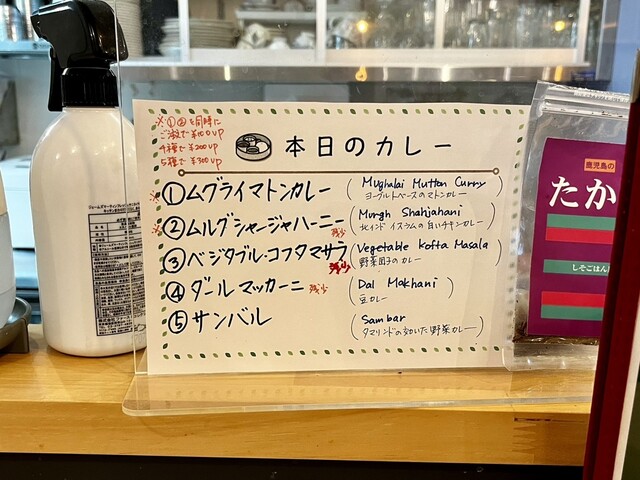 ※①②を同時に
ご注文で¥100up
4種で¥200up
5種で¥300up
本日のカレー
※①ムグライマトンカレー
(Mughalai Mutton Curry
ヨーグルトベースのマトンカレー)
※②ムルグシャージャハーニー 残少
(Murgh Shahjahani
北インド イスラムの白いチキンカレー)
③ベジタブル・コフタマサラ 残少
(Vegetable Kofta Masala
野菜団子のカレー)
④ダールマッカーニ 残少
(Dal Makhani
豆カレー)
⑤サンバル
(Sambar
タマリンドの効いた野菜カレー)
鹿児島の
たか
しそごはん